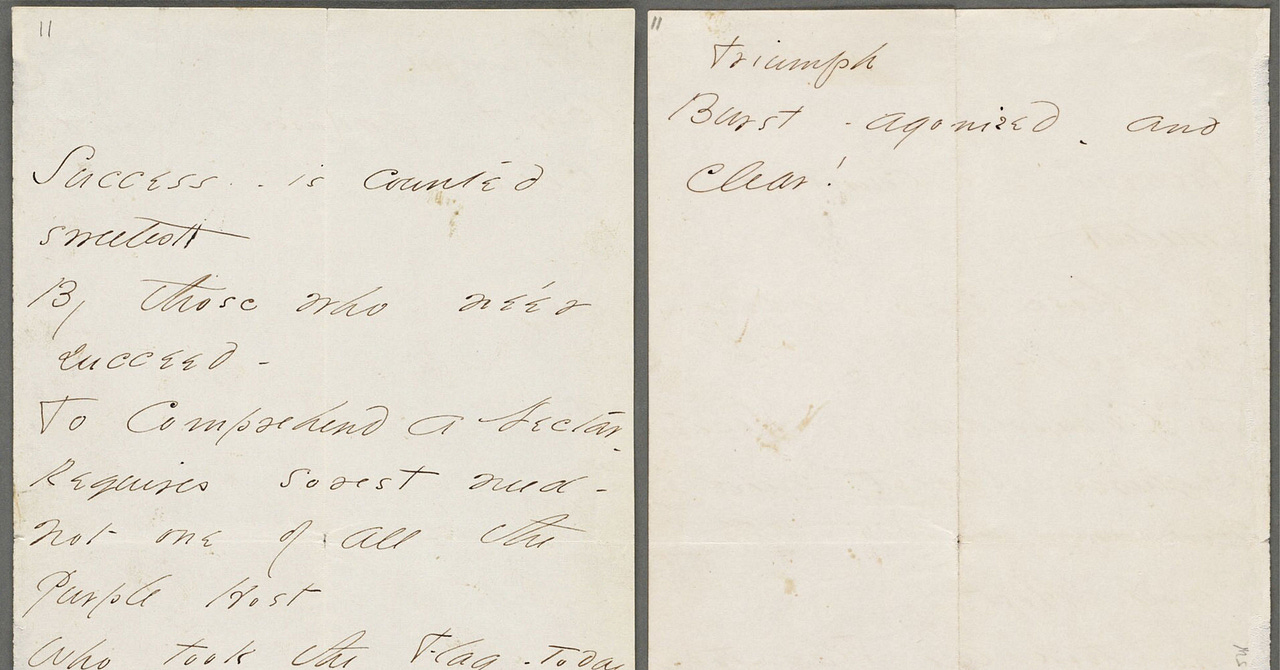 11
Success - is counted
sweetest
By those who ne'er
succeed -
To Comprehend a Nectar -
Requires sorest need -
Not one of all the
Purple Host
Who took the Flag - Today
11
Triumph
Burst - agonized - and
Clear!